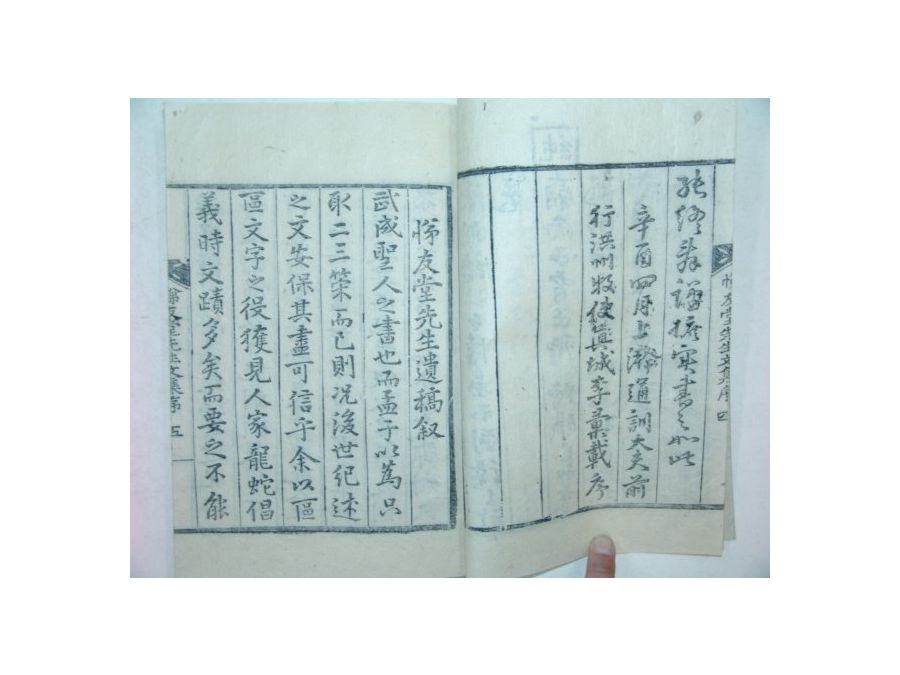 辛酉四月上澣通訓大夫前
行洪州牧使眞城李彙載序
悌友堂先生文集序 四
悌友堂先生遺稿叙
武成聖人之書也而孟子以爲只
取二三策而已則况後世紀述
之文安保其盡可信乎余以區
區文字之役獲見人家龍蛇倡
義時文蹟多矣而要之不能
悌友堂先生文集序 五